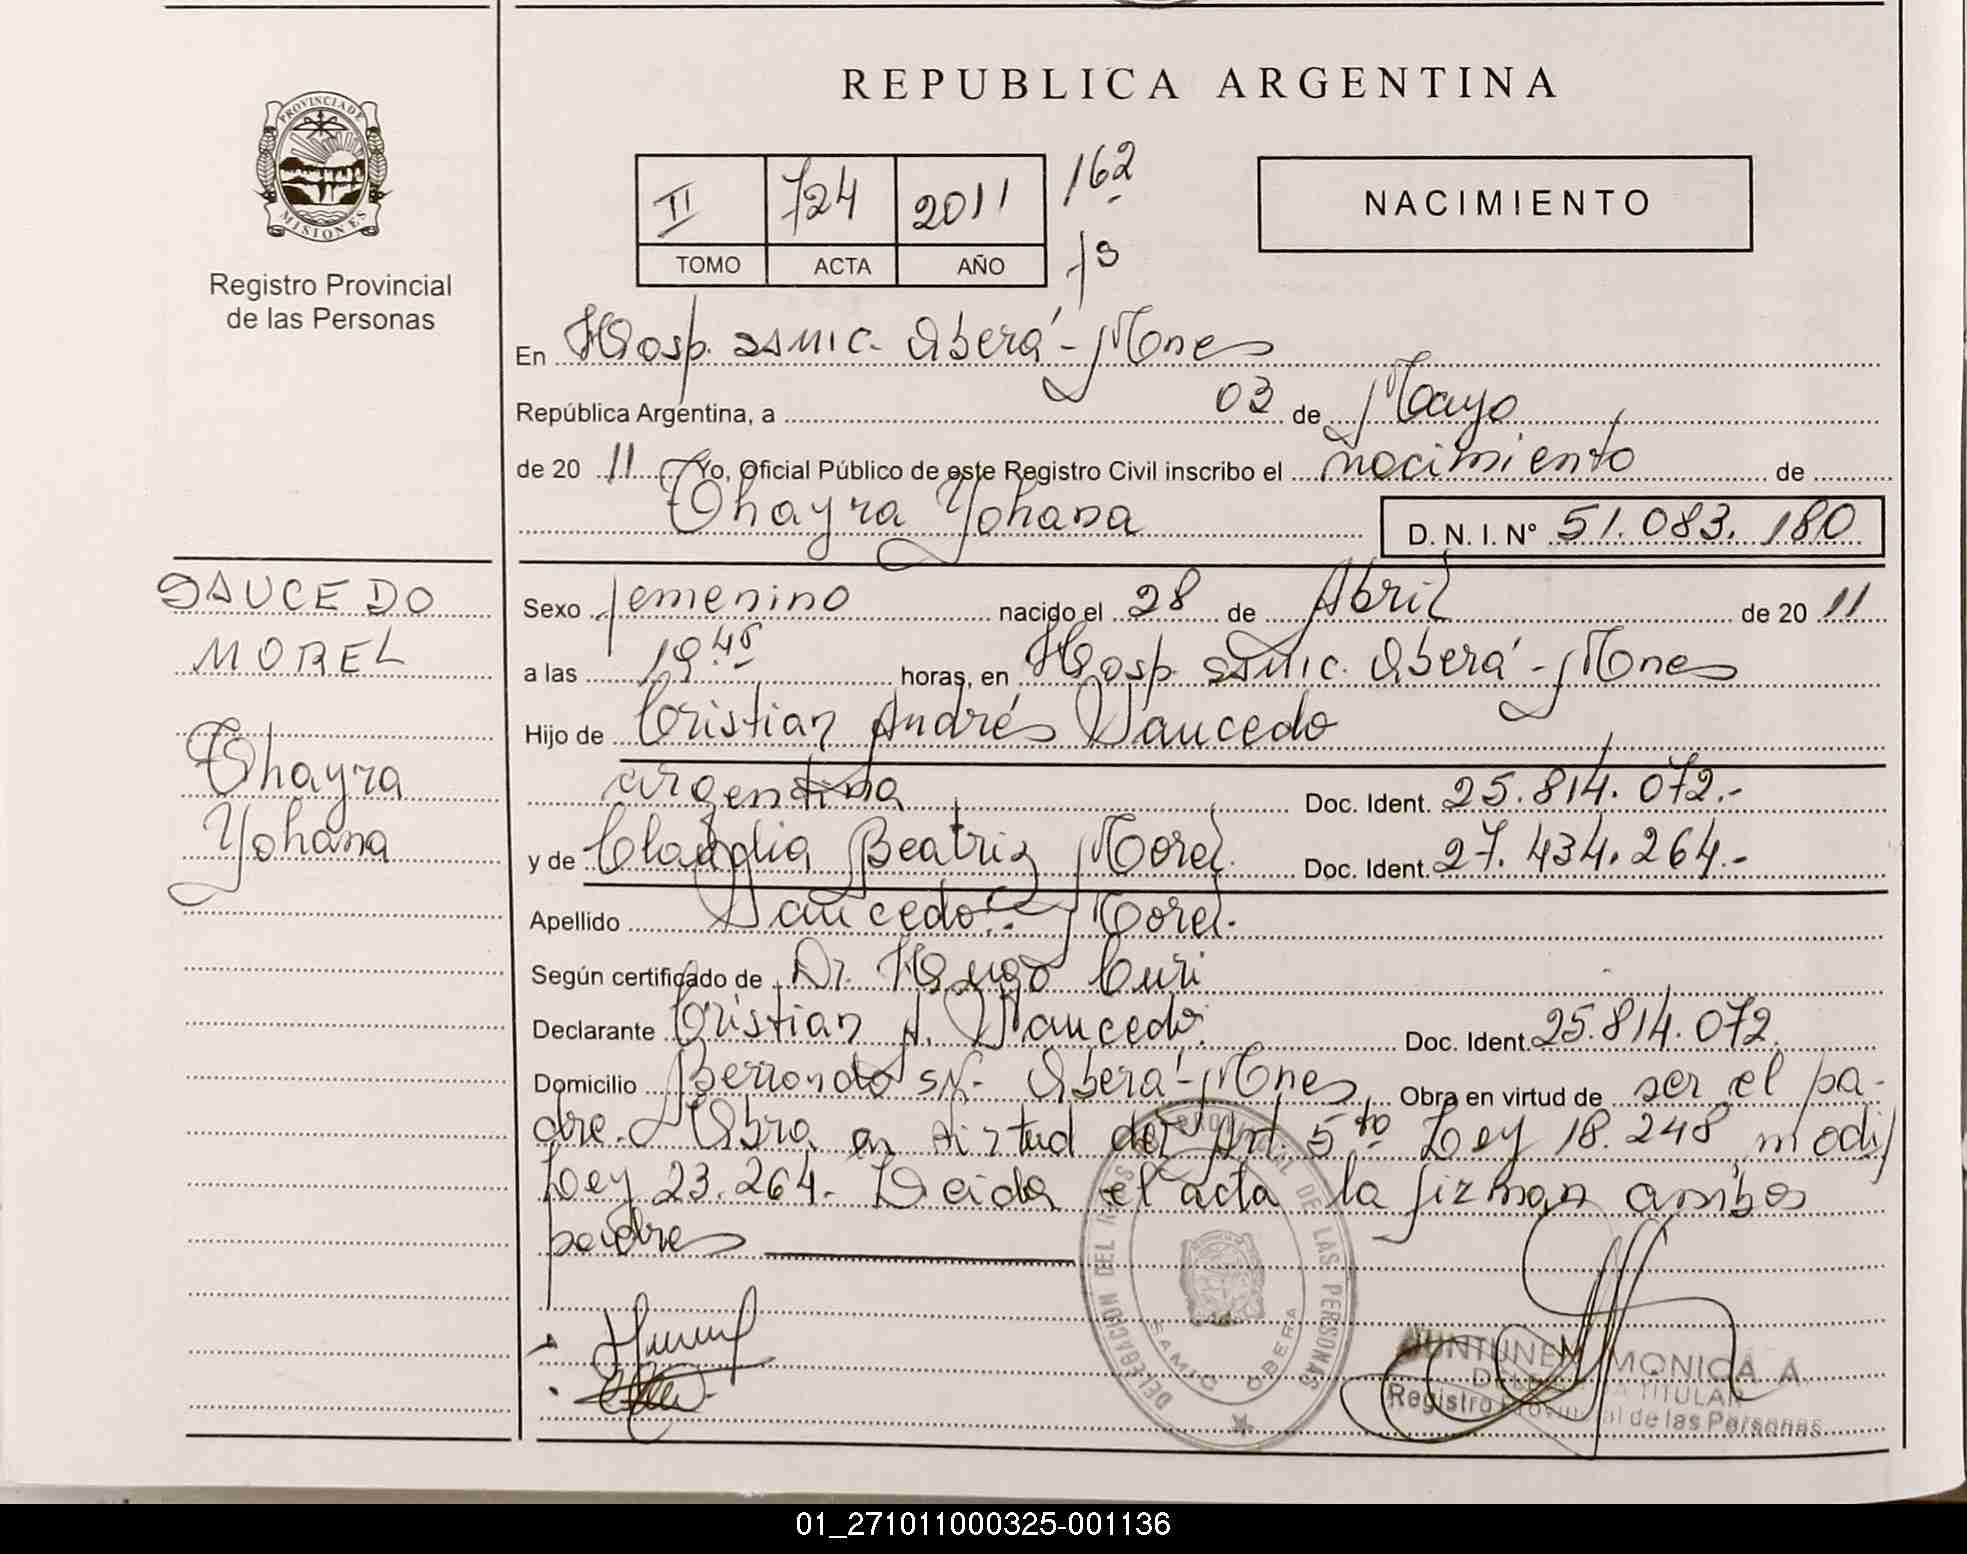 REPUBLICA ARGENTINA
PROVINCIA DE MISIONES
Registro Provincial
de las Personas
II 724 2011 162
TOMO ACTA AÑO
NACIMIENTO
En Hosp. SAMIC. Oberá - Mnes
República Argentina, a 03 de Mayo
de 20 11 Yo, Oficial Público de este Registro Civil inscribo el nacimiento de
Thayra Yohana D. N. I. Nº 51.083.180
SAUCEDO
MOREL
Thayra
Yohana
Sexo femenino nacido el 28 de Abril de 20 11
a las 19.45 horas, en Hosp. SAMIC. Oberá - Mnes
Hijo de Cristian Andrés Saucedo
argentina Doc. Ident. 25.814.072.-
y de Claudia Beatriz Morel. Doc. Ident. 27.434.264.-
Apellido Saucedo Morel.
Según certificado de Dr. Hugo Curi
Declarante Cristian A. Saucedo. Doc. Ident. 25.814.072.
Domicilio Berrondo S/N- Oberá - Mnes Obra en virtud de ser el pa-
dre. Obra en virtud del Art. 5to Ley 18.248, modif
Ley 23.264. Leida el acta la firman ambos
padres
DELEGACION DEL REG. PROVINCIAL DE LAS PERSONAS
SAMIC OBERA
JUNTUNEN MONICA A.
DELEGADA TITULAR
Registro Provincial de las Personas
01_271011000325-001136